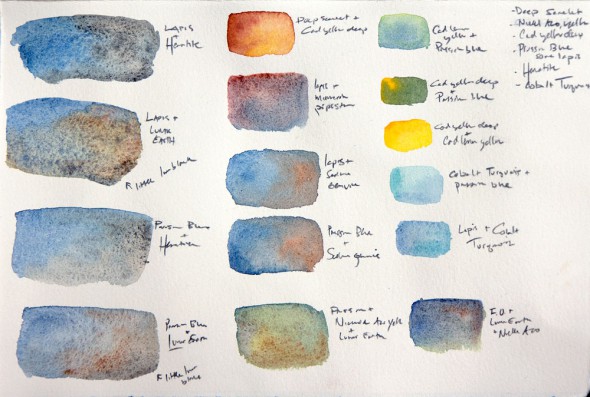 Lapis
+
Lapis +
Lunar
Earth
A little lunar black
Prussian Blue
+
Hematite
Prussian Blue
+
Lunar Earth
A little lunar
black
Deep Scarlet
+ Cad yellow deep
lapis
+
lapis +
Sodalite
Genuine
Prussian Blue
+
Prussian +
Nickel Azo Yellow
+
Lunar Earth
Cad lemon
yellow +
Prussian blue
Cad yellow deep
Prussian blue
Cad yellow deep
+
Cad lemon yellow
Cobalt Turquoise +
prussian blue
Lapis + Cobalt
Turquoise
+
Lunar Earth
+ Nickel Azo
- Deep Scarlet
- Nickel Azo yellow
- Cad yellow deep
- Prussian Blue
lapis
- Hematite
- Cobalt Turquoise